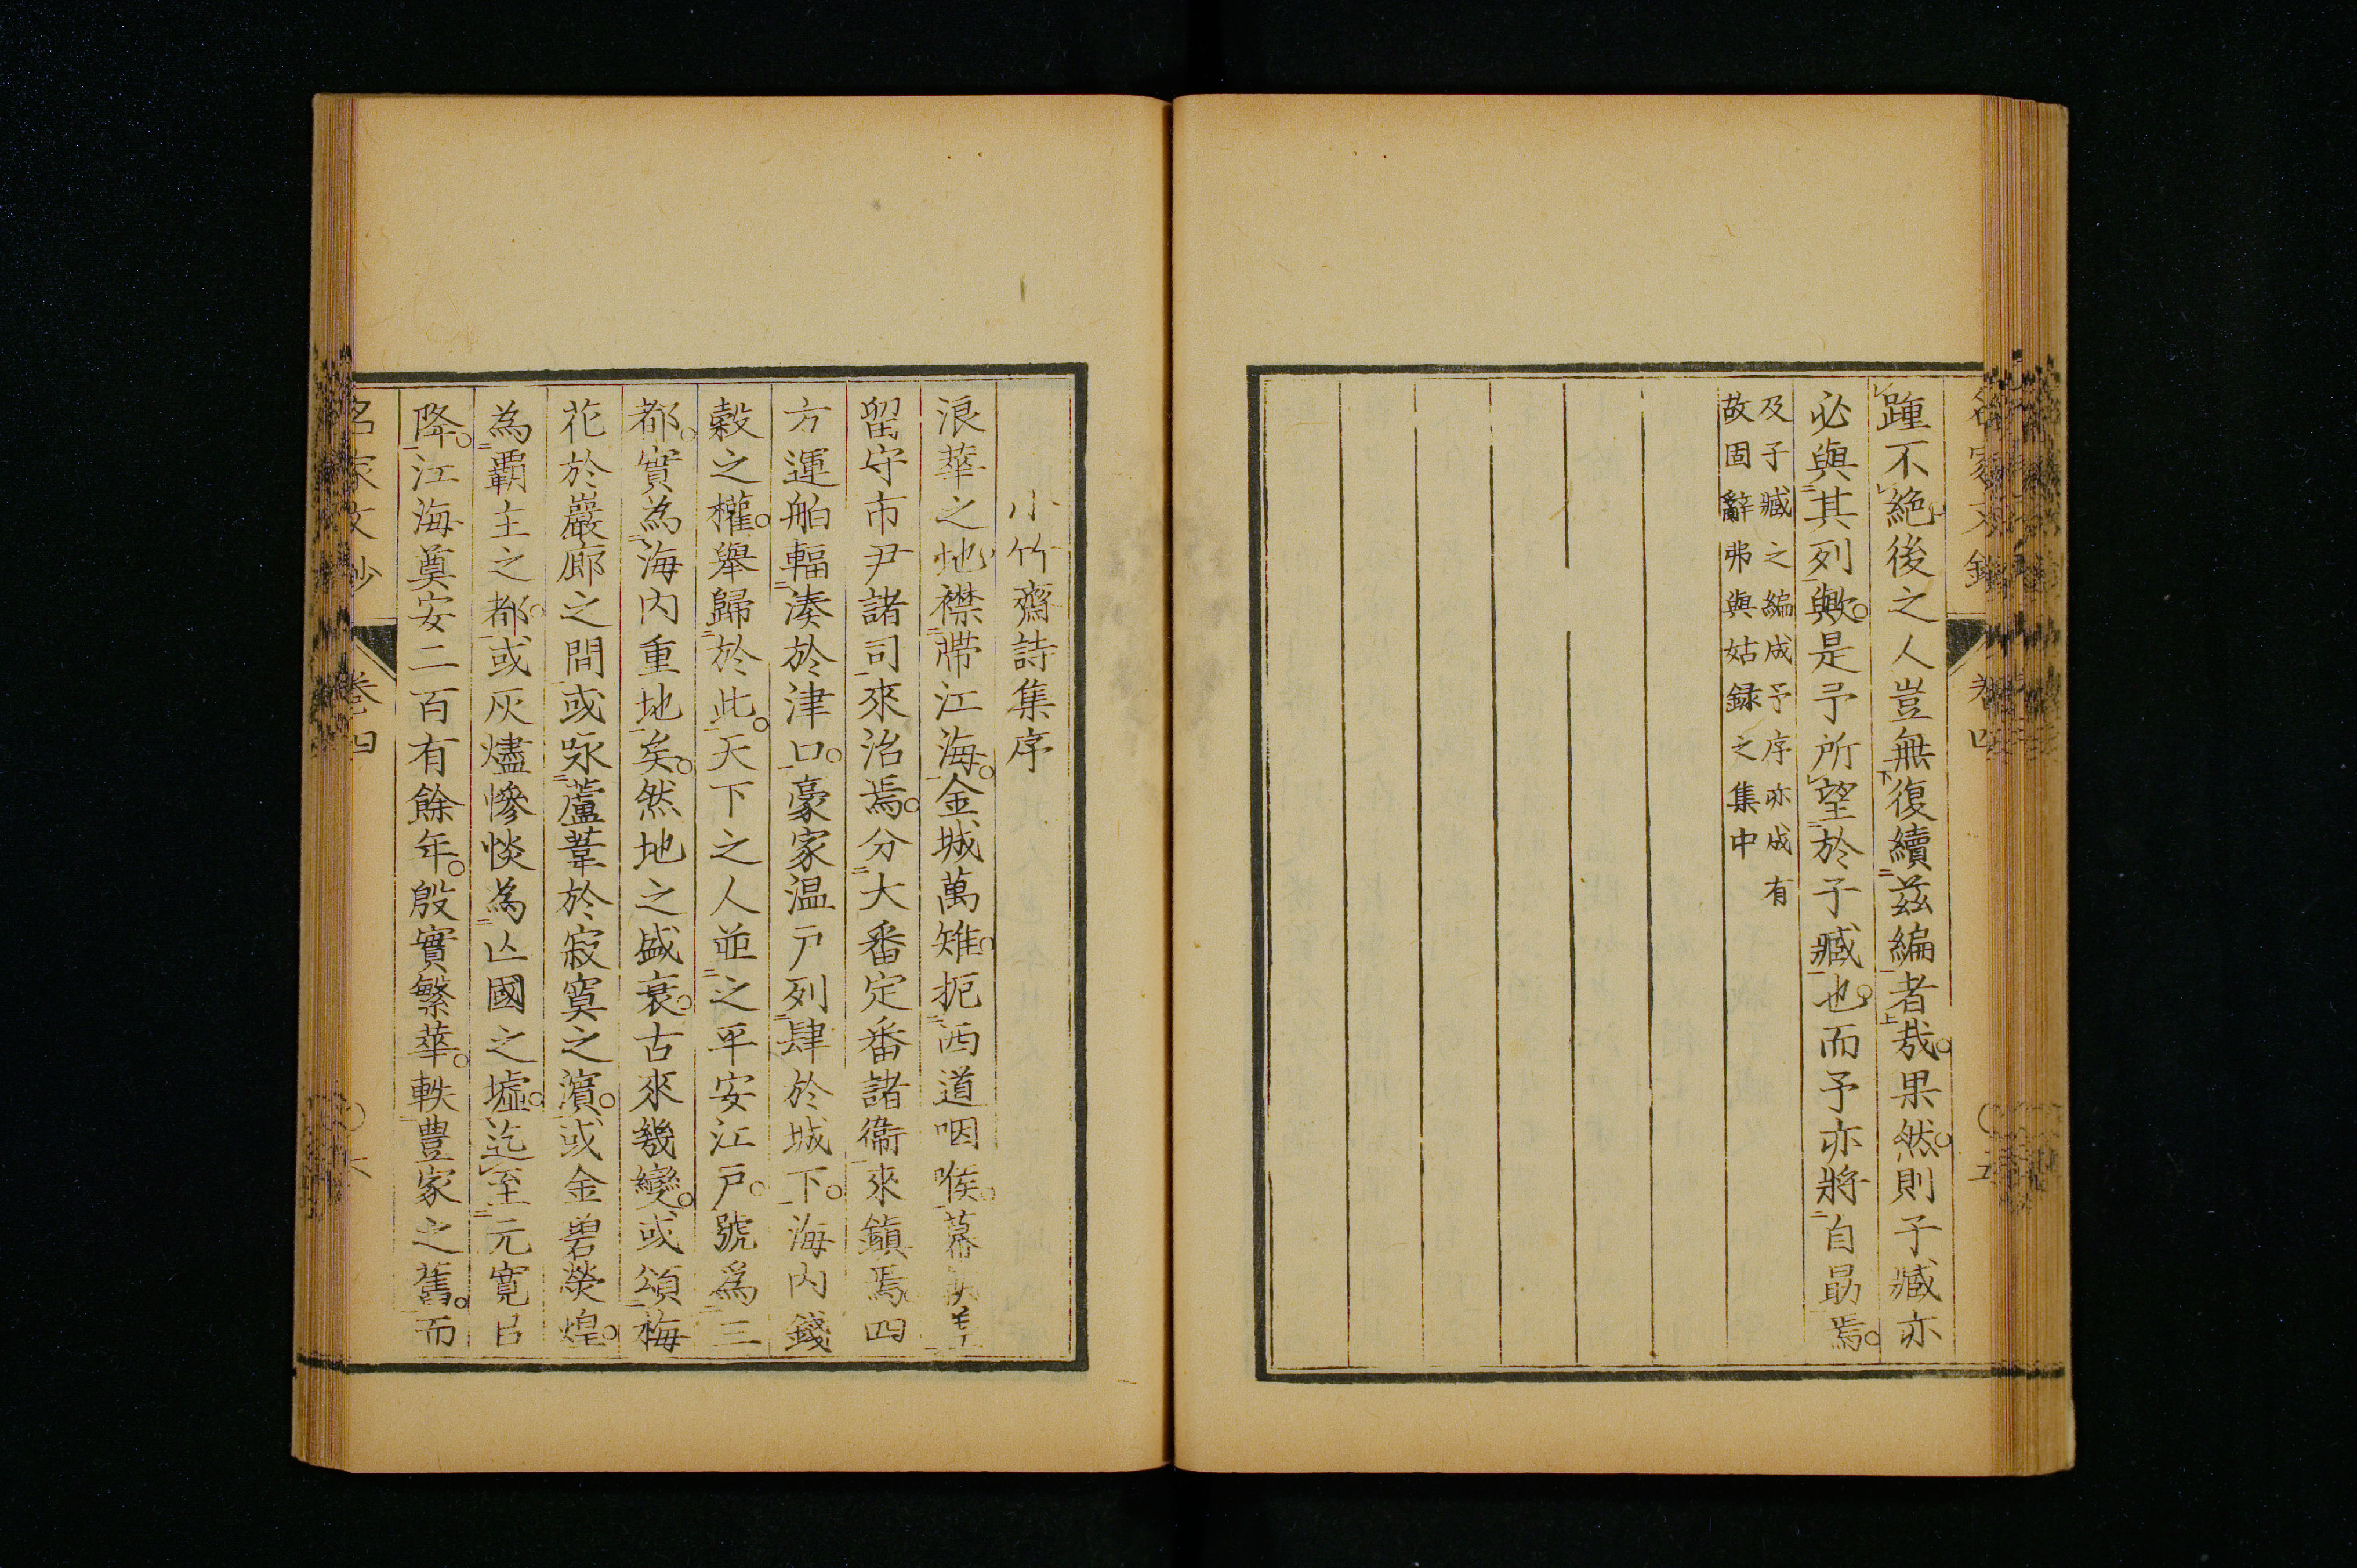 名家文鈔 卷四 五
踵不絶後之人豈無復續茲編者哉果然則子臧亦
必與其列歟是予所望於子臧也而予亦將自勗焉
及子臧之編成予序亦成有
故固辭弗與姑録之集中
小竹齋詩集序
浪華之地襟帶江海金城萬雉扼西道咽喉幕
留守市尹諸司來治焉分大番定番諸衞來鎭焉四
方運舶輻湊於津口豪家温戸列肆於城下海内錢
穀之權舉歸於此天下之人並之平安江戸號爲三
都實為海内重地矣然地之盛衰古來幾變或頌梅
花於巖廊之間或咏蘆葦於寂寞之濵或金碧熒煌
為覇主之都或灰燼慘惔為亾國之墟迄至元寛已
降江海奠安二百有餘年殷實繁華軼豊家之舊而
名家文鈔 卷四 六